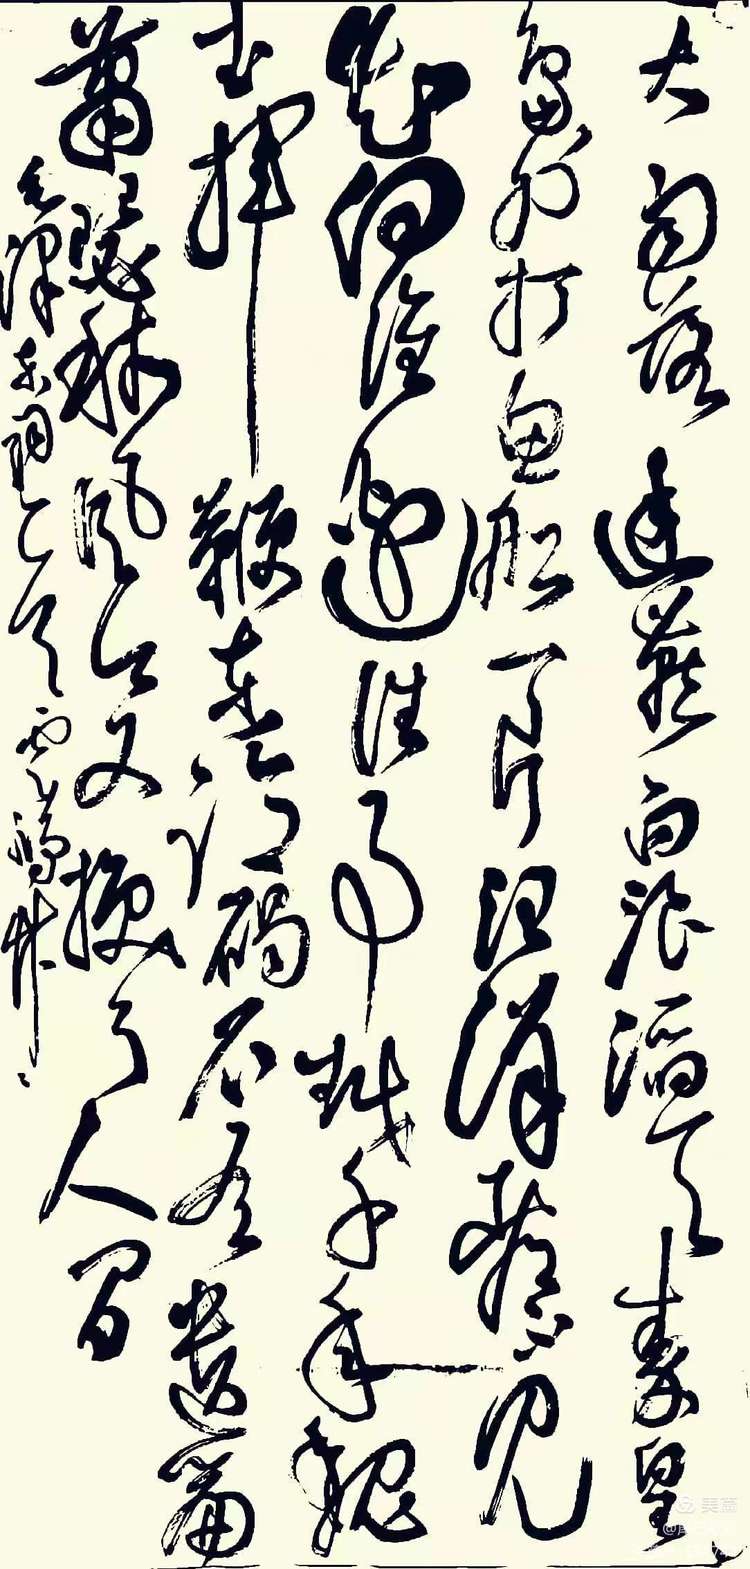 大雨落幽燕白浪滔天秦皇
岛外打鱼船一片汪洋都不见
知向谁边往事越千年魏
武挥鞭东临碣石有遗篇
萧瑟秋风今又换了人间
毛泽东词一首
美篇